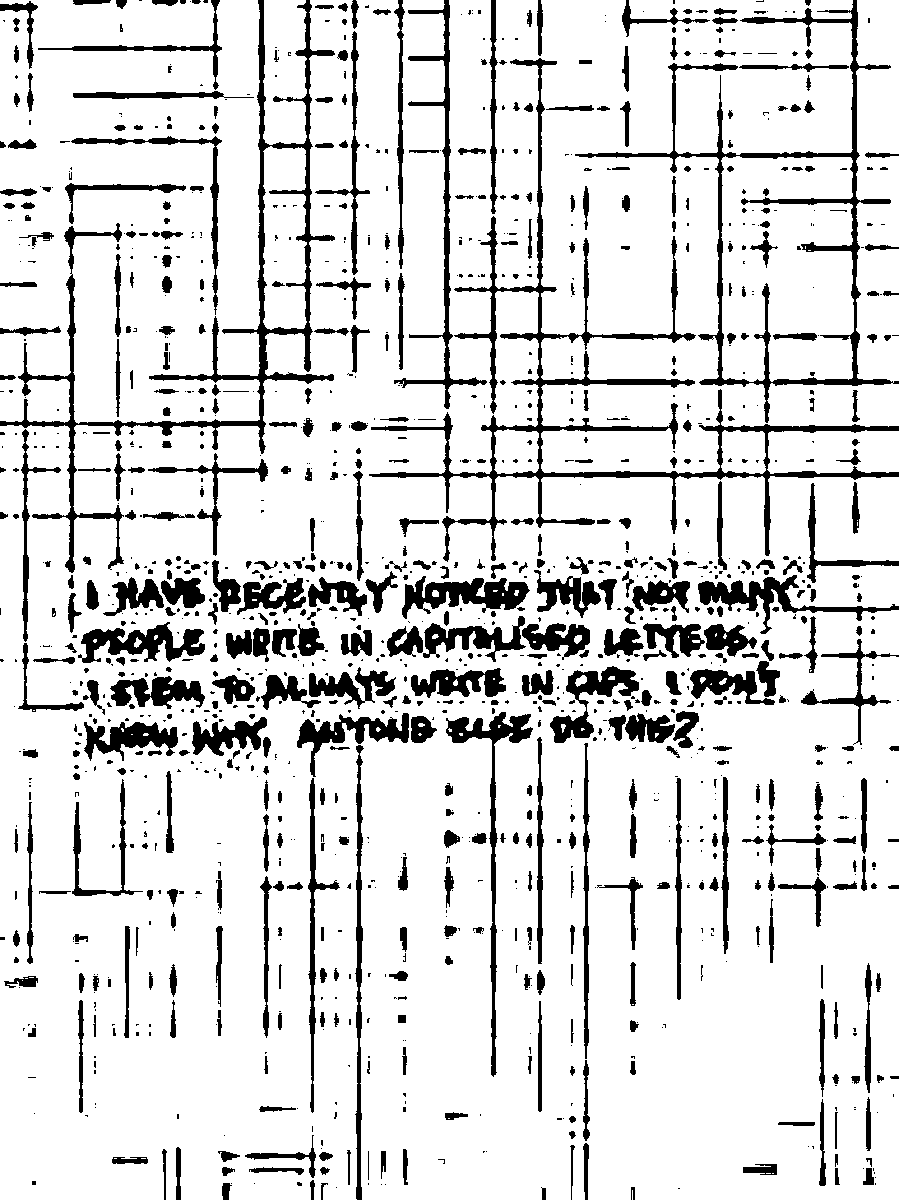 I HAVE RECENTLY NOTICED THAT NOT MANY
PEOPLE WRITE IN CAPITALISED LETTERS.
I SEEM TO ALWAYS WRITE IN CAPS, I DON'T
KNOW WHY. ANYONE ELSE DO THIS?